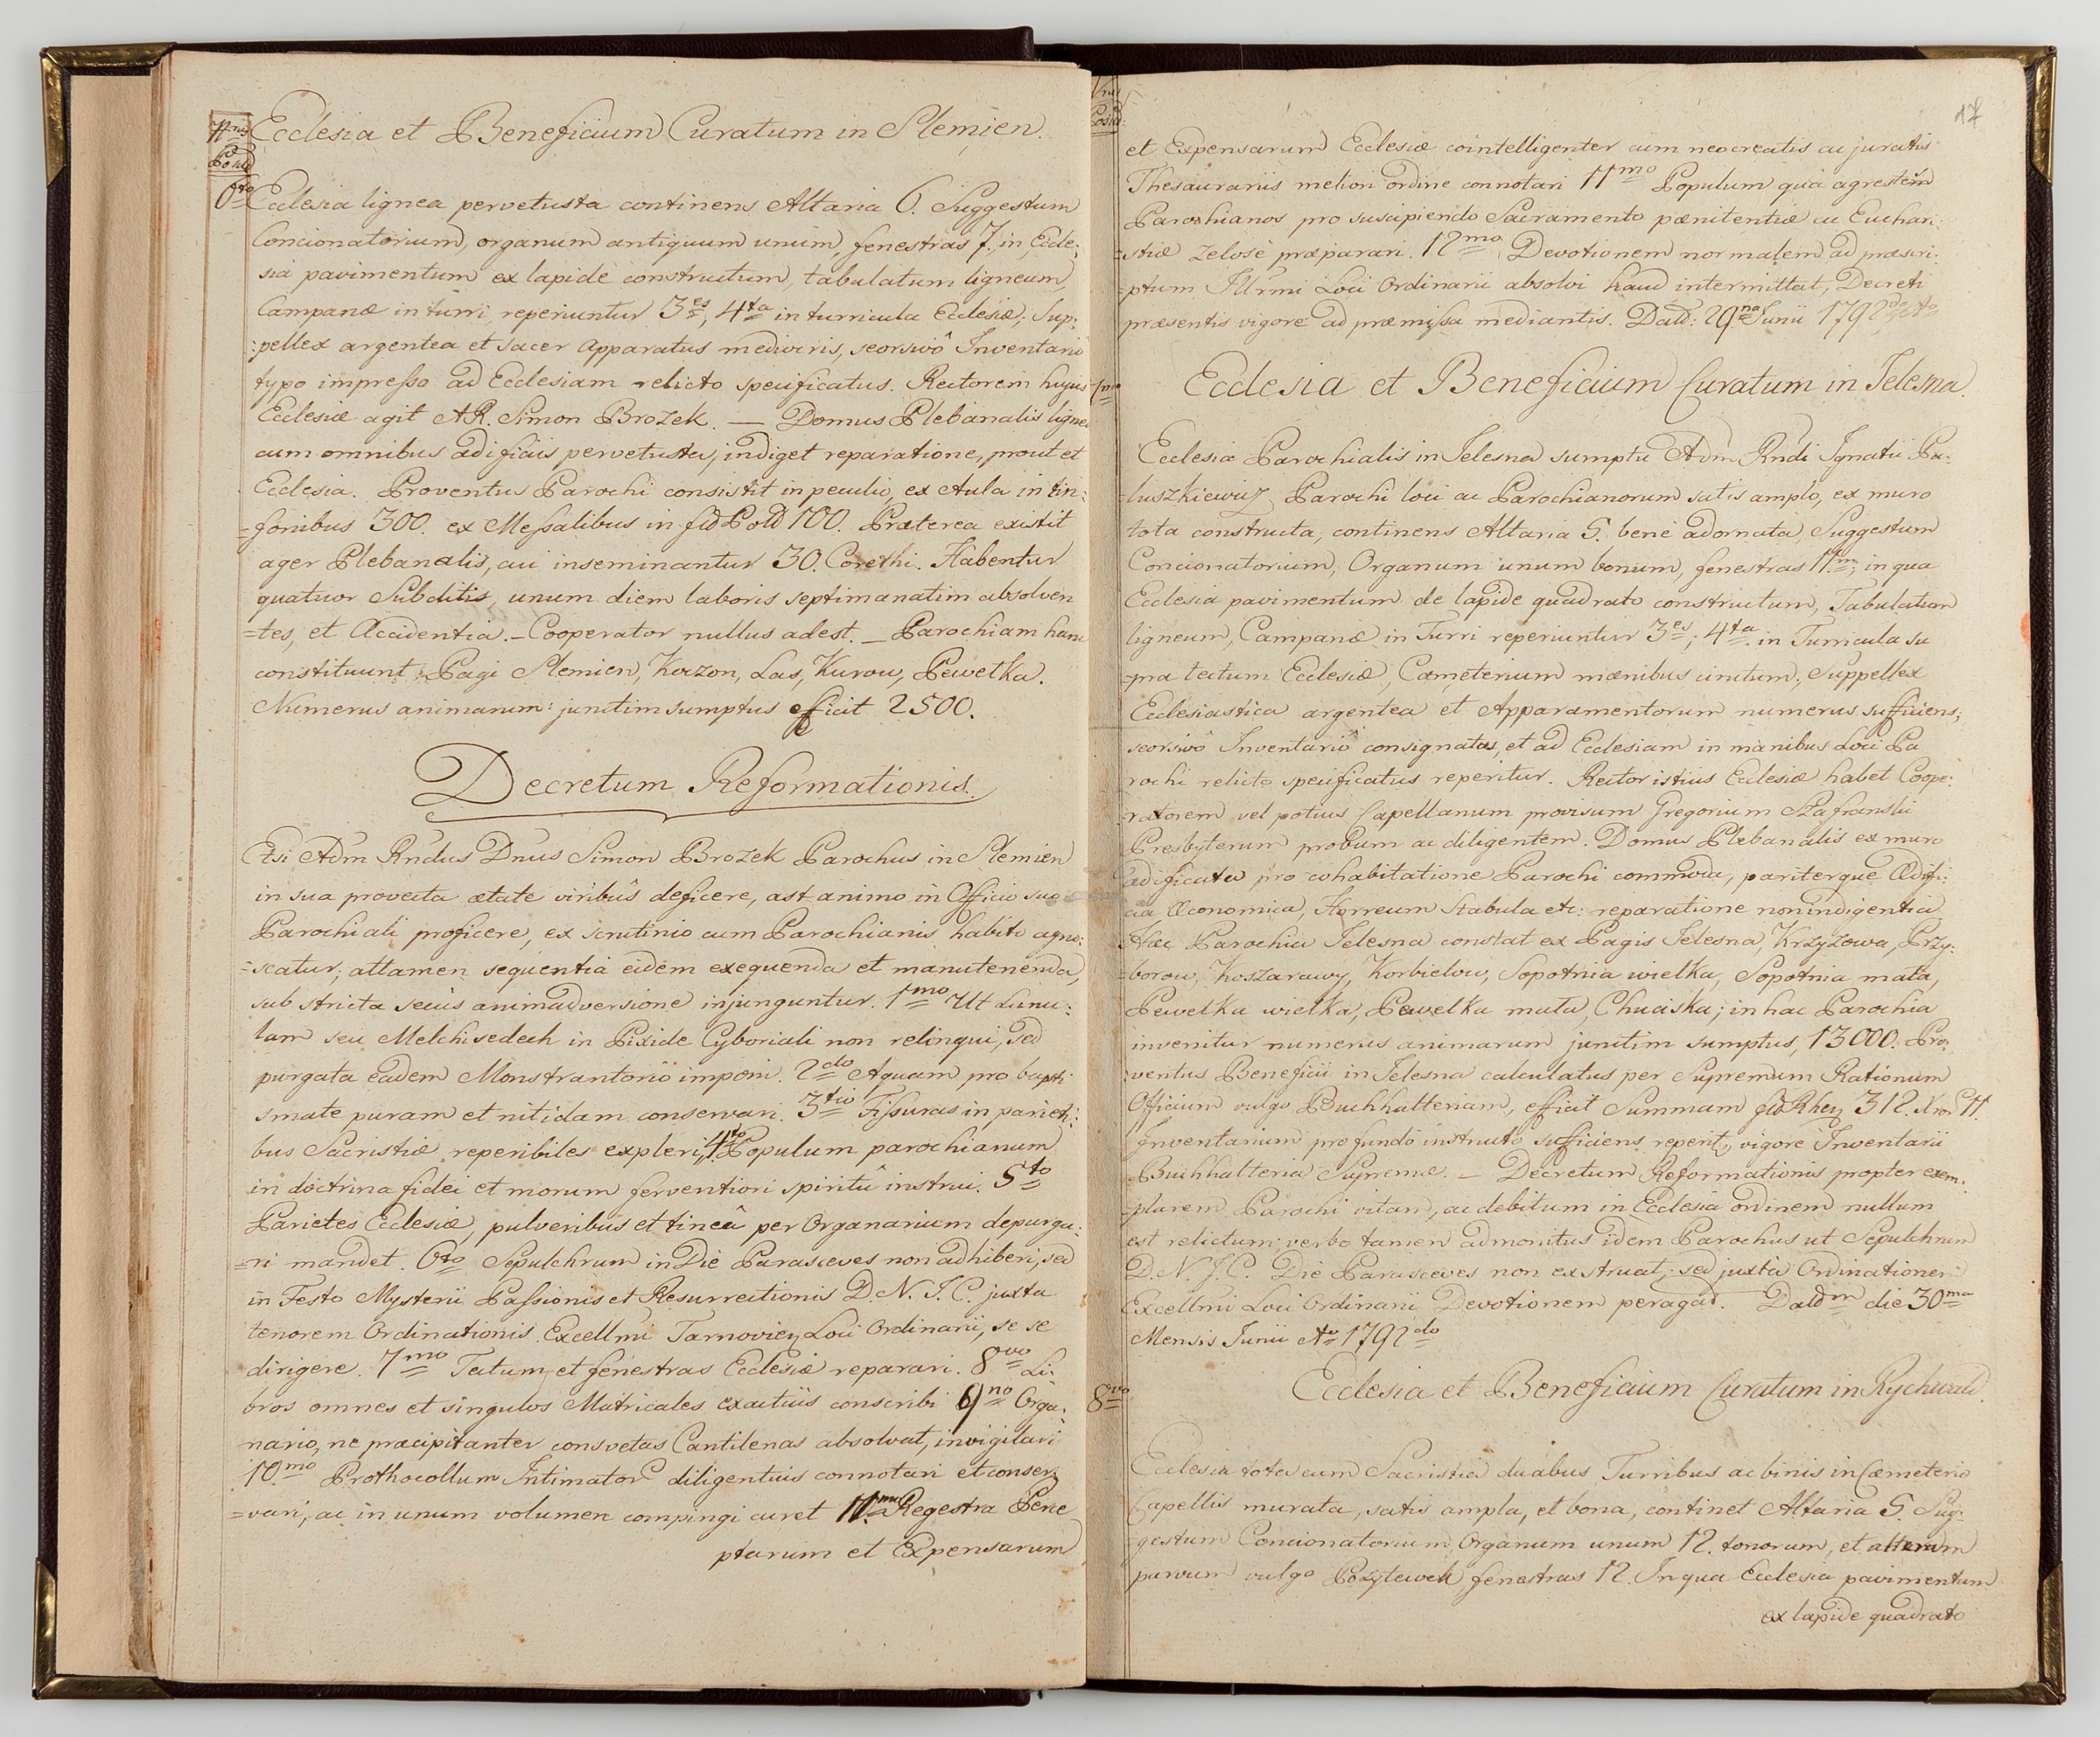 Nrus
Posit:
Ecclesia et Beneficium Curatum in Slemien.
6to Ecclesia lignea pervetusta continens Altaria 6. Suggestum
Concionatorium, organum antiquum unum, fenestras 7. in Eccle:
sia pavimentum ex lapide constructum, tabulatum ligneum,
Campanæ in turri reperiuntur 3es, 4ta in turricula Ecclesiæ; Sup:
:pellex argentea et sacer apparatus mediocris, seorsivô Inventario
typo impresso ad Ecclesiam relicto specificatus. Rectorem hujus
Ecclesiæ agit AR. Simon Brozek. — Domus Plebanalis lignea
cum omnibus ædificiis pervetusta, indiget reparatione, prout et
Ecclesia. Proventus Parochi consistit in peculio, ex Aula in tin:
=fonibus 300. ex Messalibus in fld Pold 100. Præterea existit
ager Plebanalis, cui inseminantur 30. Corethi. Habentur
quatuor Subditis, unum diem laboris septimanatim absolven
=tes, et Accidentia. — Cooperator nullus adest. — Parochiam hanc
constituunt Pagi Slemien, Koczon, Las, Kurow, Pewelka.
Numerus animarum: junctim sumptus efficit 2500.
Decretum Reformationis.
Etsi Adm Rndus Dnus Simon Brozek Parochus in Slemien
in sua provecta ætate viribûs deficere, ast animo in Officio suo
Parochiali proficere, ex scrutinio cum Parochianis habito agno:
=scatur; attamen sequentia eidem exequenda et manutenenda,
sub stricta secus animadversione injunguntur. 1mo Ut Lunu:
lam seu Melchisedech in Pixide Cyboriali non relinqui, sed
purgata eadem Monstrantorio imponi. 2do Aquam pro bapti
smate puram et nitidam conservari. 3tio Fissuras in parieti:
bus Sacristiæ reperibiles expleri, 4to Populum parochianum
in doctrina fidei et morum ferventiori spiritû instrui. 5to
Parietes Ecclesiæ, pulveribus et tineâ per Organarium depurga:
=ri mandet. 6to Sepulchrum in Die Parasceves non adhiberi, sed
in Festo Mysterii Passionis et Resurrectionis D. N. J. C. juxta
tenorem Ordinationis Excellmi Tarnovien Loci Ordinarii, se se
dirigere. 7mo Tectum et fenestras Ecclesiæ reparari. 8vo Li:
bros omnes et singulos Matricales exactius conscribi 9no Orga:
nario, ne præcipitanter consvetas Cantilenas absolvat, invigilari
10mo Prothocollum Intimator diligentius connotari et conser
=vari, ac in unum volumen compingi curet 11mo Regestra Perce
ptarum et Expensarum
17
Nrus
Posit:
et Expensarum Ecclesiæ cointelligenter cum neocreatis ac juratis
Thesaurariis meliori ordine connotari 11mo Populum quà agrestem
Parochianos pro suscipiendo Sacramento pænitentiæ ac Euchari:
=stiæ zelosè præparari. 12mo Devotionem normalem ad præscri:
=ptum Illrmi Loci Ordinarii absolvi haud intermittat, Decreti
præsentis vigore ad præmissa mediantis. Datd: 29na Junii 1792do
7mo Ecclesia et Beneficium Curatum in Jelesna.
Ecclesia Parochialis in Jelesna sumptu Adm Rndi Ignatii Pa:
=luszkiewicz Parochi loci ac Parochianorum satis amplo, ex muro
tota constructa, continens Altaria 5. benè adornata, Suggestum
Concionatorium, Organum unum bonum, fenestras 11m; in qua
Ecclesia pavimentum de lapide quadrato constructum, Tabulatum
ligneum, Campanæ in Turri reperiuntur 3es; 4ta in Turricula su
=pra tectum Ecclesiæ, Cæmeterium mænibus cinctum; Suppellex
Ecclesiastica argentea et Apparamentorum numerus sufficiens;
seorsivô Inventariô consignatus, et ad Ecclesiam in manibus Loci Pa
rochi relicto specificatus reperitur. Rector istius Ecclesiæ habet Coope:
:ratorem vel potius Capellanum provisum Gregorium Szafranski
Presbyterum probum ac diligentem. Domus Plebanalis ex muro
ædificata pro cohabitatione Parochi commoda, pariterque Ædifi:
cia Œconomica, Horreum Stabula etc: reparatione non indigentia
Hæc Parochia Jelesna constat ex Pagis Jelesna, Krzyżowa, Przy:
=borow, Koszarawy, Korbielow, Sopotnia wielka, Sopotnia mała,
Pewelka wielka, Pewelka mala, Chuciska; in hac Parochia
invenitur numerus animarum junctim sumptus, 13000. Pro:
:ventus Beneficii in Jelesna calculatus per Supremum Rationum
Officium vulgo Buchhalteriam, efficit Summam fld Rhen 312. Xror 11.
Inventarium pro fundô instructo sufficiens reperitr vigore Inventarii
Buchhalteria Supremæ. — Decretum Reformationis propter exem:
=plarem Parochi vitam, ac debitum in Ecclesia ordinem nullum
est relictum; verbo tamen admonitus idem Parochus ut Sepulchrum
D. N. J. C. Die Parasceves non exstruat; sed juxta Ordinationem
Excellmi Loci Ordinarii Devotionem peragat. Datdm die 30ma
Mensis Junii Ao 1792do
8vo Ecclesia et Beneficium Curatum in Rychwald.
Ecclesia tota cum Sacristia duabus Turribus ac binis in Cæmeterio
Capellis murata, satis ampla, et bona, continet Altaria 5. Sug:
=gestum Concionatorium, Organum unum 12. tonorum, et alterum
parvum vulgo Pozytewek, fenestras 12. In qua Ecclesia pavimentum
ex lapide quadrato